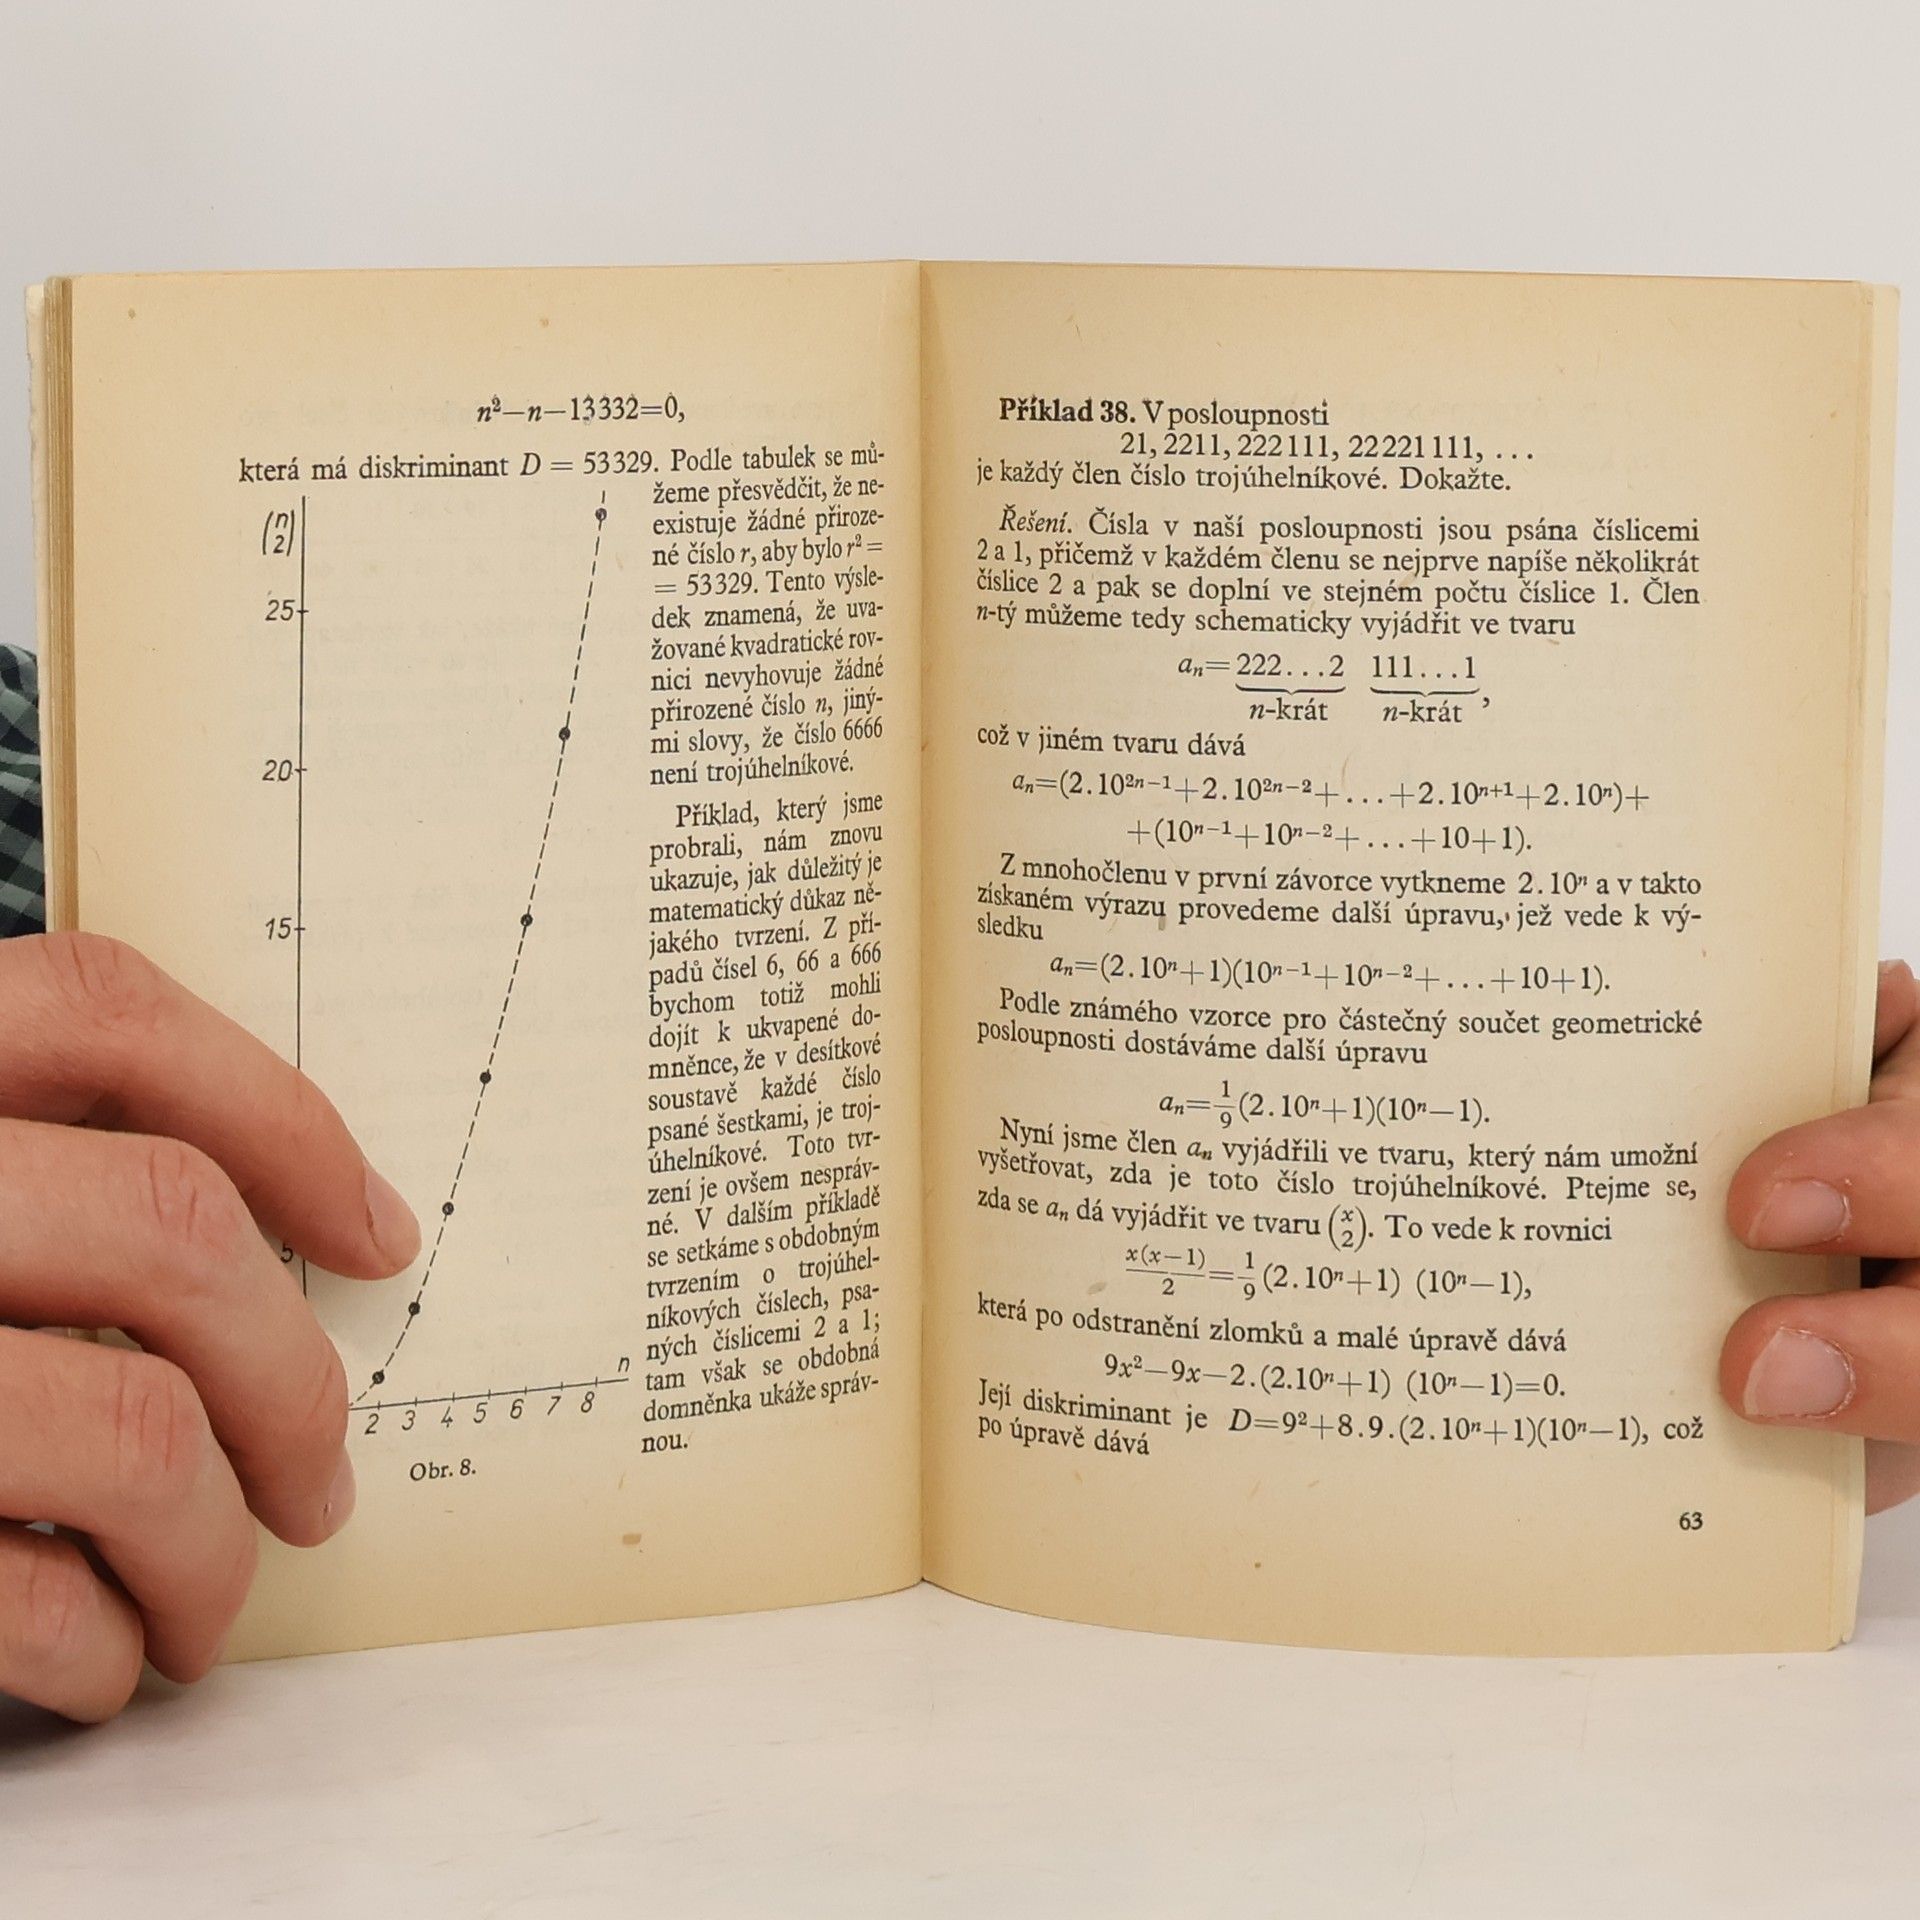 n²—n—13332=0,
která má diskriminant D = 53329. Podle tabulek se mů-
žeme přesvědčit, že ne-
existuje žádné přiroze-
né číslo r, aby bylo r² =
= 53329. Tento výsle-
dek znamená, že uva-
žované kvadratické rov-
nici nevyhovuje žádné
přirozené číslo n, jiný-
mi slovy, že číslo 6666
není trojúhelníkové.
Příklad, který jsme
probrali, nám znovu
ukazuje, jak důležitý je
matematický důkaz ně-
jakého tvrzení. Z pří-
padů čísel 6, 66 a 666
bychom totiž mohli
dojít k ukvapené do-
mněnce, že v desítkové
soustavě každé číslo
psané šestkami, je troj-
úhelníkové. Toto tvr-
zení je ovšem nespráv-
né. V dalším příkladě
se setkáme s obdobným
tvrzením o trojúhel-
níkových číslech, psa-
ných číslicemi 2 a 1;
tam však se obdobná
domněnka ukáže správ-
nou.
(n 2)
25
20
15
5
n
2 3 4 5 6 7 8
Obr. 8.
Příklad 38. V posloupnosti
21, 2211, 222111, 22221111, ...
je každý člen číslo trojúhelníkové. Dokažte.
Řešení. Čísla v naší posloupnosti jsou psána číslicemi
2 a 1, přičemž v každém členu se nejprve napíše několikrát
číslice 2 a pak se doplní ve stejném počtu číslice 1. Člen
n-tý můžeme tedy schematicky vyjádřit ve tvaru
aₙ=222...2 111...1,
n-krát n-krát
což v jiném tvaru dává
aₙ=(2.10²ⁿ⁻¹+2.10²ⁿ⁻²+...+2.10ⁿ⁺¹+2.10ⁿ)+
+(10ⁿ⁻¹+10ⁿ⁻²+...+10+1).
Z mnohočlenu v první závorce vytkneme 2.10ⁿ a v takto
získaném výrazu provedeme další úpravu, jež vede k vý-
sledku
aₙ=(2.10ⁿ+1)(10ⁿ⁻¹+10ⁿ⁻²+...+10+1).
Podle známého vzorce pro částečný součet geometrické
posloupnosti dostáváme další úpravu
aₙ=1/9(2.10ⁿ+1)(10ⁿ—1).
Nyní jsme člen aₙ vyjádřili ve tvaru, který nám umožní
vyšetřovat, zda je toto číslo trojúhelníkové. Ptejme se,
zda se aₙ dá vyjádřit ve tvaru (x 2). To vede k rovnici
x(x—1)/2=1/9 (2.10ⁿ+1) (10ⁿ—1),
která po odstranění zlomků a malé úpravě dává
9x²—9x—2.(2.10ⁿ+1) (10ⁿ—1)=0.
Její diskriminant je D=9²+8.9.(2.10ⁿ+1)(10ⁿ—1), což
po úpravě dává
63